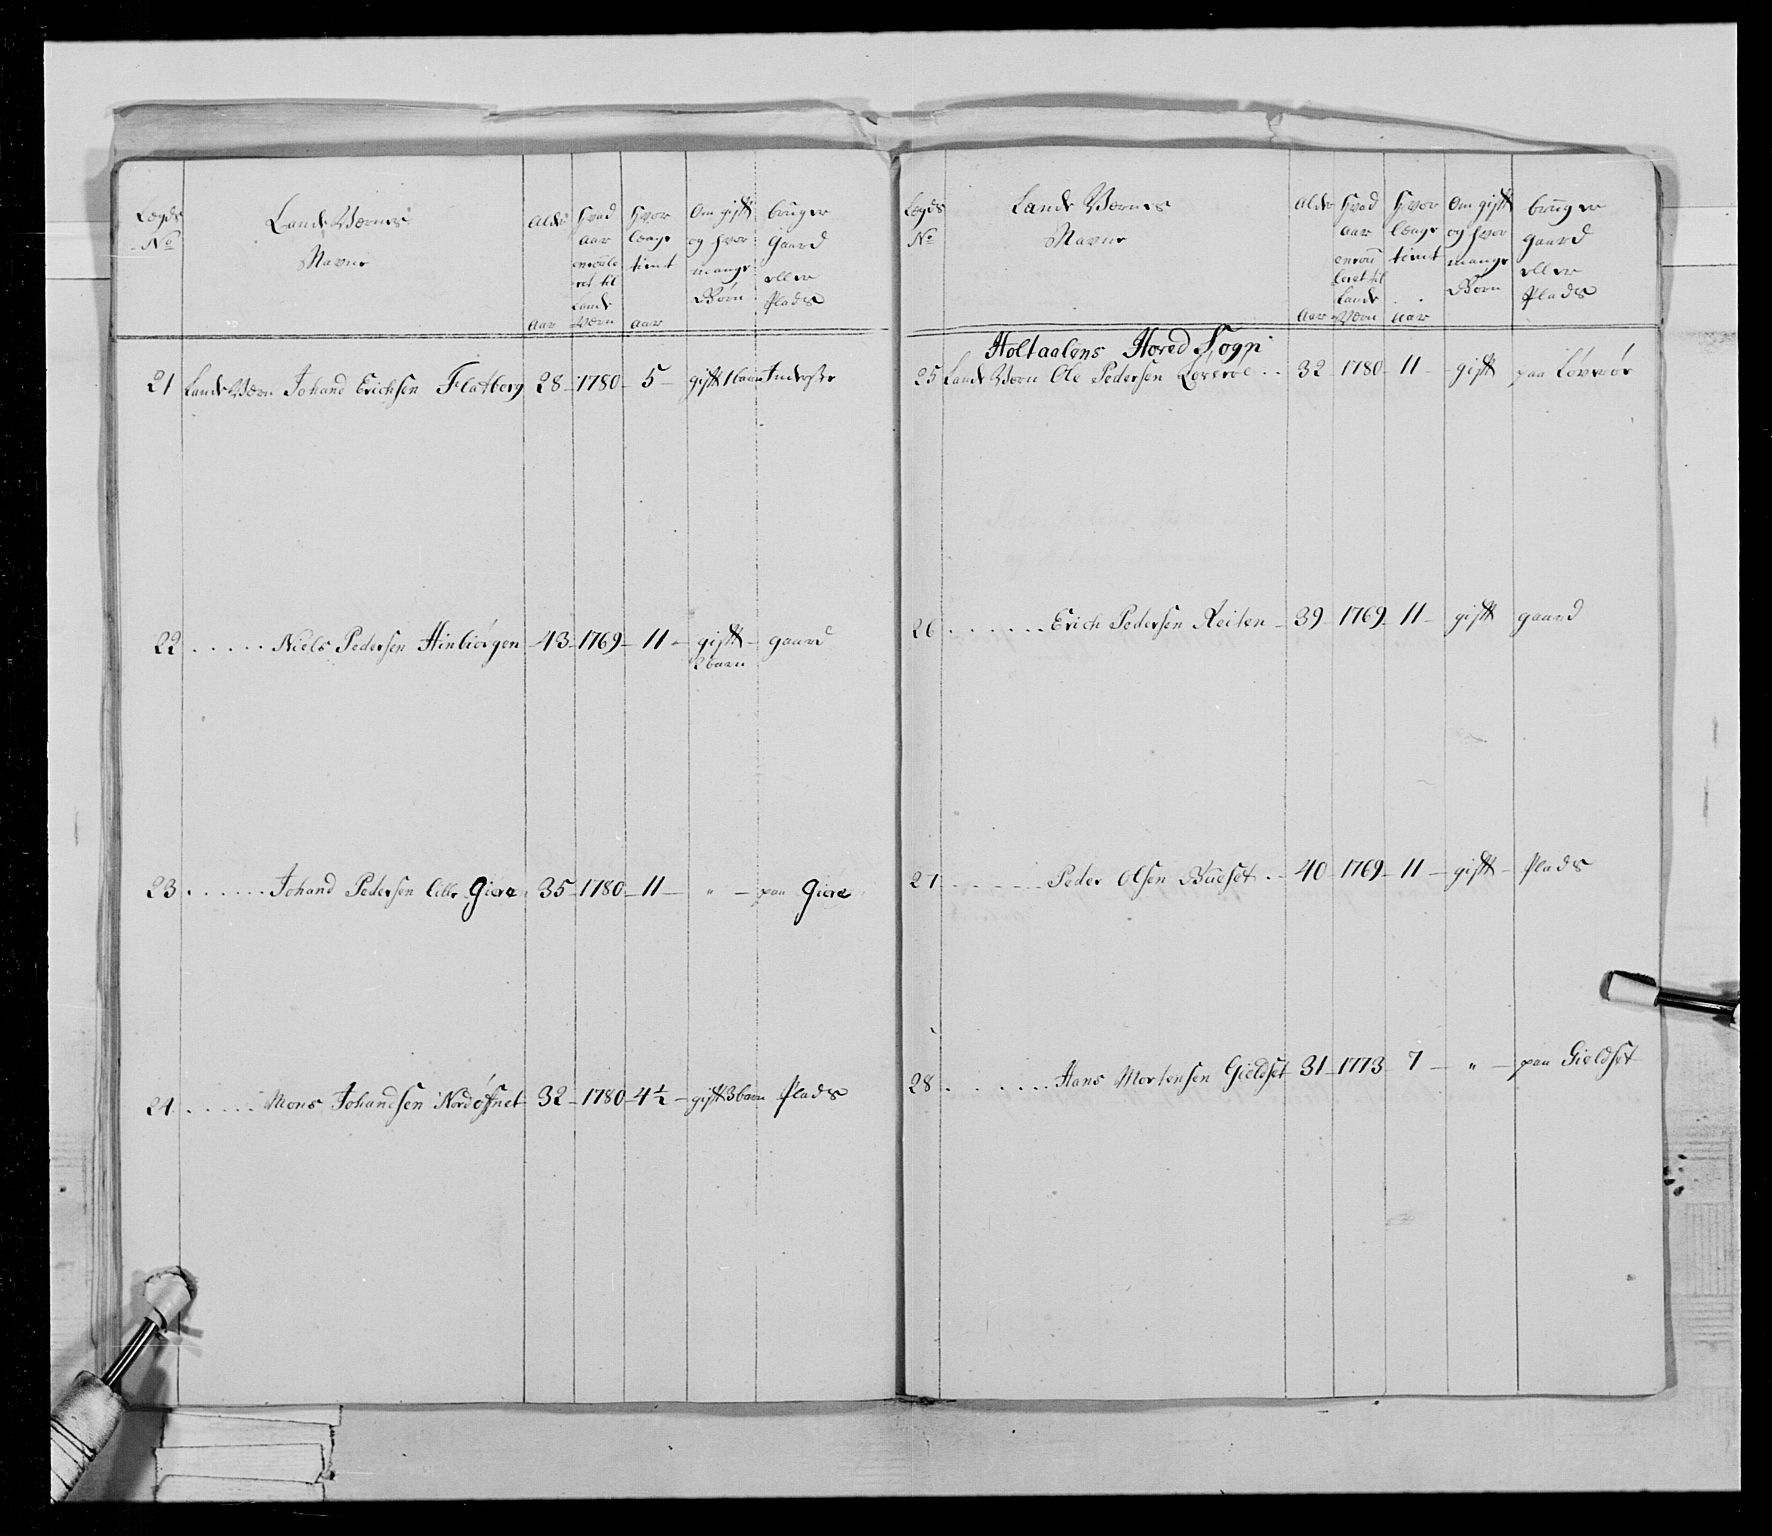 Lægds No | Lande Værnes Navne | Alder Aar | Hvad Aar enroulleret til Lande Værn | Hvor længe tient Aar | Om gift og hvor mange Børn | bruger gaard eller Plads
21 Lande Værn Johand Erichsen Flatberg 28 - 1780 - 5 - gift 1 barn
22 . . . . . Niels Pedersen Hinbiørgen - 43 - 1769 - 11 - gift - gaard
2 barn
23 . . . . . . Johand Pedersen Lille Giera 35 - 1780 - 11 - " - paa Giera
24 . . . . . Mons Johandsen Nordøfnet 32 - 1780 - 4½ - gift 3 barn Plads
Lægds No | Lande Værnes Navne | Alder Aar | Hvad Aar enroulleret til Lande Værn | Hvor længe tient Aar | Om gift og hvor mange Børn | bruger gaard eller Plads
Holtaalens Hoved Sogn
25 Lande Værn Ole Pedersen . . 32 - 1780 - 11 - gift paa
26 . . . . . . Erich Pedersen Reiten - 39 - 1769 - 11 - gift gaard
27 . . . . . . Peder Olsen Bueset . - 40 - 1769 - 11 - gift - Plads
28 . . . . . . Hans Mortensen Gieldset 31 - 1773 - 7 - " - paa Gieldset